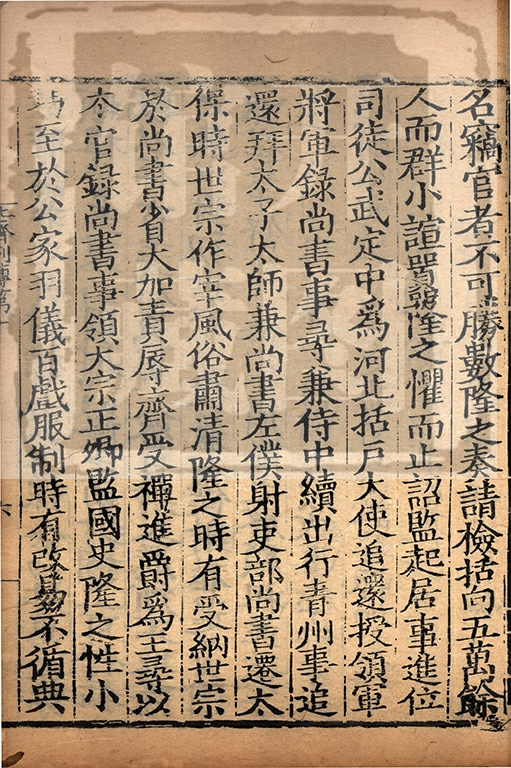 名竊官者不可勝數隆之奏請檢括向五萬餘
人而群小諠囂隆之懼而止詔監起居事進位
司徒公武定中爲河北括戶大使追還授領軍
將軍録尚書事尋兼侍中續出行青州事追
還拜太子太師兼尚書左僕射吏部尚書遷太
保時世宗作宰風俗肅清隆之時有受納世宗
於尚書省大加責辱齊受禪進爵爲王尋以
本官録尚書事領大宗正卿監國史隆之性小
巧至於公家羽儀百戲服制時有改易不循典
六